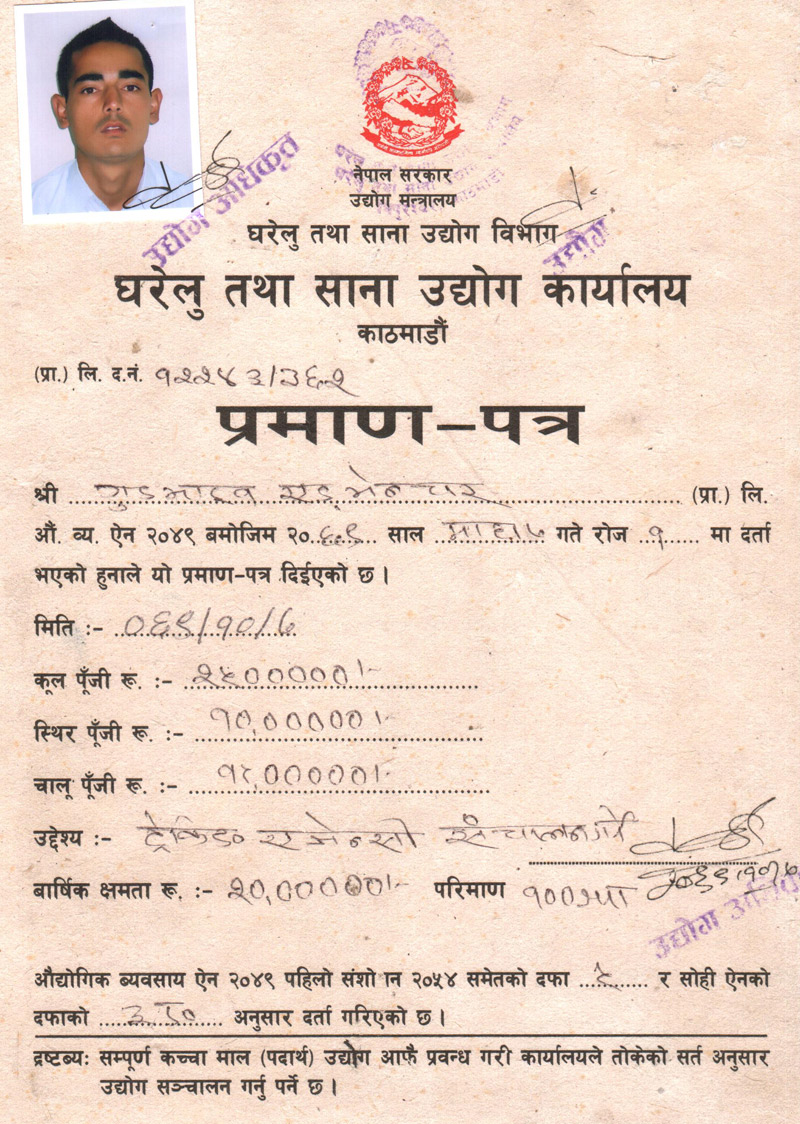 नेपाल सरकार
उद्योग मन्त्रालय
घरेलु तथा साना उद्योग विभाग
घरेलु तथा साना उद्योग कार्यालय
काठमाडौं
उद्योग अधिकृत
उद्योग
(प्रा.) लि. द.नं. १२२४३/३६२
प्रमाण-पत्र
श्री एड्भेन्चर (प्रा.) लि.
औं. व्य. ऐन २०४९ बमोजिम २०६९ साल माघ ७ गते रोज १ मा दर्ता
भएको हुनाले यो प्रमाण-पत्र दिईएको छ ।
मिति :- ०६९/१०/७
कूल पूँजी रू. :- २५०००००।-
स्थिर पूँजी रू. :- १०,०००००।-
चालू पूँजी रू. :- १५,०००००।-
उद्देश्य :- ट्रेकिङ एजेन्सी संचालन गर्ने
बार्षिक क्षमता रू. :- २०,०००००।- परिमाण १००
उद्योग
औद्योगिक ब्यवसाय ऐन २०४९ पहिलो संशो ान २०५४ समेतको दफा ९ र सोही ऐनको
दफाको अनुसार दर्ता गरिएको छ ।
द्रष्टब्यः सम्पूर्ण कच्चा माल (पदार्थ) उद्योग आफै प्रवन्ध गरी कार्यालयले तोकेको सर्त अनुसार
उद्योग सञ्चालन गर्नु पर्ने छ ।